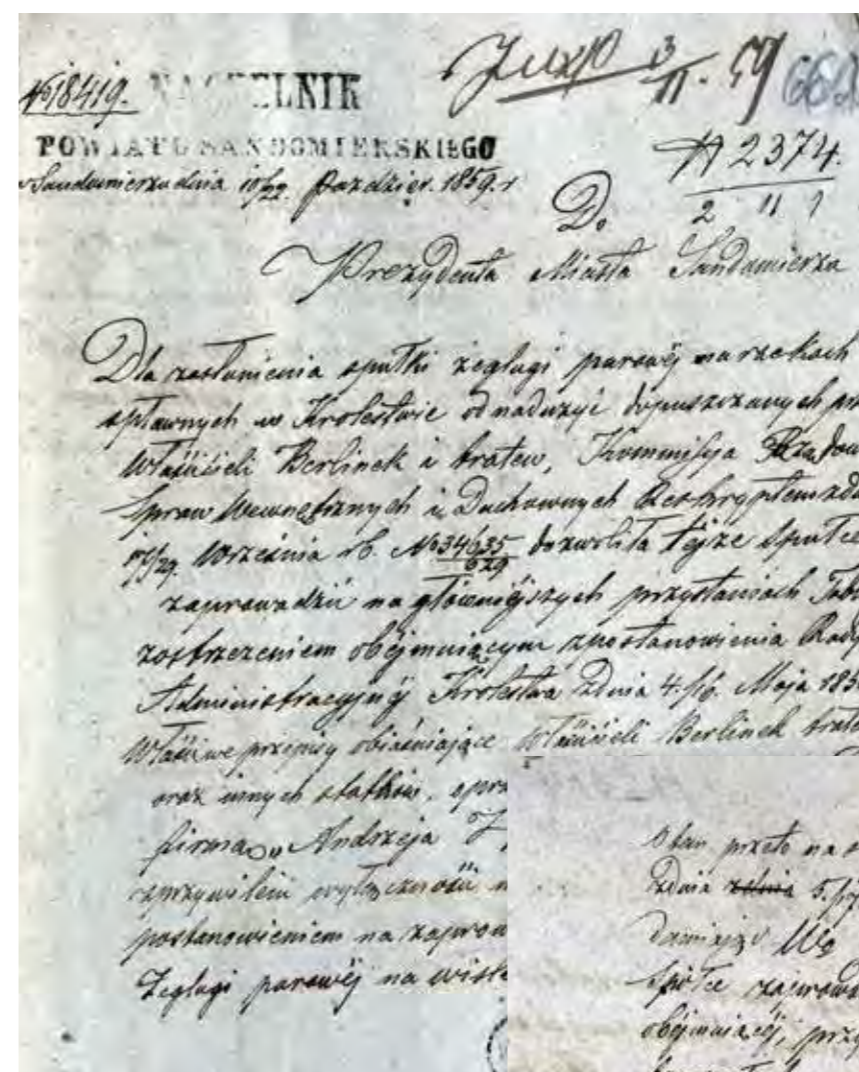 № 18419. NACZELNIK
POWIATU SANDOMIERSKIEGO
w Sandomierzu dnia 10/22. Paździer. 1859. r
3/11. 59
662
№ 2374.
2 11
Do
Prezydenta Miasta Sandomierza
Dla zasłonienia spułki żeglugi parowéj na rzekach
spławnych w Krolestwie od nadużyć dopuszczanych
Właścicieli Berlinek i tratew, Kommissya Rządow
Spraw Wewnętrznych i Duchownych Reskryptem
17/29. Września rb. № 34635/629 dozwoliła tejże Spułce
zaprowadzić na głowniéjszych przystaniach Tab
zastrzezeniem obejmuiącym postanowienia Rady
Administracyjnéj Krolestwa Zdnia 4./16. Maja 185
Właściwe przepisy obiaśniające Właścicieli Berlinek trate
oraz innych statków,
firmą „Andrzeja
wyłączności
postanowieniem na zaprow
Zeglugi parowéj na wiśle
przeto na
Zdnia zdnia 5./17
Spółce zaprowa
obejmuiącéj, przy